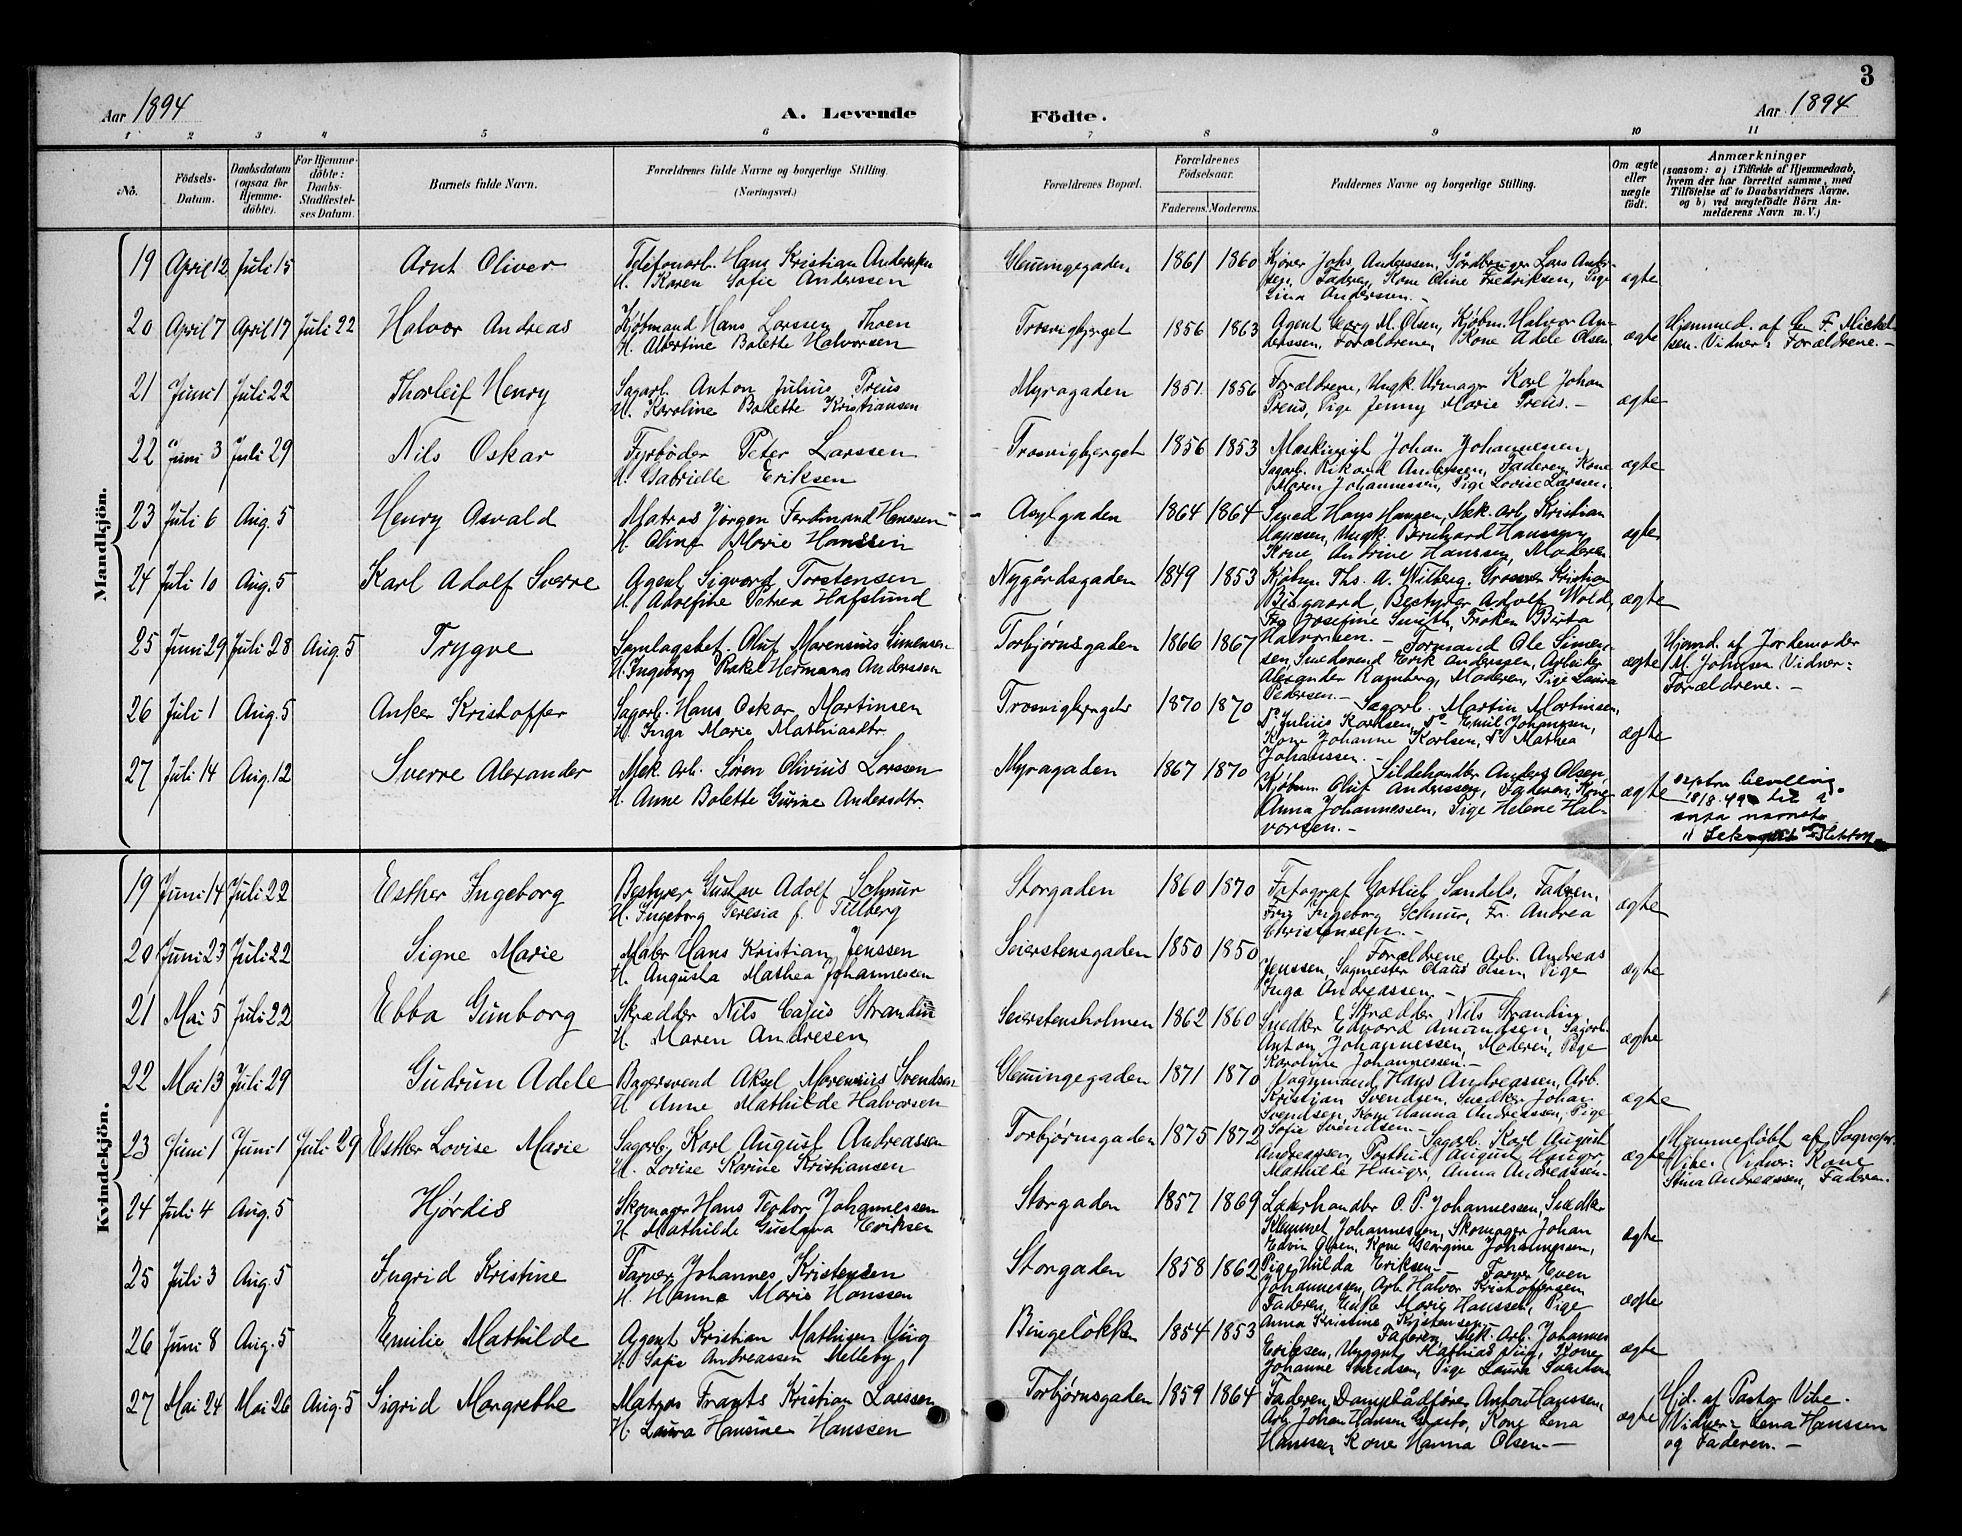 3
Aar 1894
A. Levende
Födte.
Aar 1894
1 2 3 4 5 6 7 8 9 10 11
No.
Födsels-
Datum.
Daabsdatum
(ogsaa for
Hjemme-
döbte).
For Hjemme-
döbte:
Daabs-
Stadfæstel-
ses Datum.
Barnets fulde Navn.
Forældrenes fulde Navne og borgerlige Stilling.
(Næringsvei.)
Forældrenes Bopæl.
Forældrenes
Födselsaar.
Faderens. Moderens.
Faddernes Navne og borgerlige Stilling.
Om ægte
eller
uægte
født.
Anmærkninger
(saasom: a) i Tilfælde af Hjemmedaab,
hvem der har forrettet samme, med
Tilföielse af to Daabsvidners Navne.
og b) ved uægtefödte Börn An-
melderens Navn m. V.)
Mandkjön.
19 April 12 Juli 15 Arnt Oliver
Telefonarb. Hans Kristian Anderssen
H. Karen Sofie Anderssen
Glemmingegaden 1861 1860
Kjører Johs. Anderssen, Gårdbruger Lars Ander-
sen, Faderen, Kone Oline Fredriksen, Pige
Lina Anderssen.-
ægte
20 April 7 April 17 Juli 22 Halvor Andreas
Kjøbmand Hans Larssen Thoen
H. Albertine Bolette Halvorsen
Trosvigbjerget 1856 1863
Agent Georg M. Olsen, Kjøbm. Halvor An-
derssen, Forældrene, Kone Adele Olsen
ægte
Hjemmed. af C. F. Mickel-
sen. Vidner: Forældrene.-
21 Juni 1 Juli 22 Thorleif Henry
Sagarb. Anton Julius Preus
H. Karoline Bolette Kristiansen
Myragaden 1851 1856
Forældrene, Ungk. Urmager Karl Johan
Preus, Pige Jenny Marie Preus.-
ægte
22 Juni 3 Juli 29 Nils Oskar
Fyrbøder Peter Larssen
H. Gabrielle Eriksen
Trosvigbjerget 1856 1853
Maskinvigt Johan Johannesen,
Sagarb. Rikard Anderssen, Faderen, Kone
Maren Johannessen, Pige Lovise Larsen.
ægte
23 Juli 6 Aug. 5 Henry Osvald
Matros Jørgen Ferdinand Hanssen
H. Oline Marie Hanssen
Asylgaden 1864 1864
Smed Hans Hansen, Mek. Arb. Kristian
Hanssen, Ungk. Bernhard Hanssen,
Kone Andrine Hanssen, Moderen
ægte
24 Juli 10 Aug. 5 Karl Adolf Sverre
Agent Sigvard Torstensen
H. Adolfine Petrea Hafslund
Nygårdsgaden 1849 1853
Kjøbm. Ths. A. Wilberg, Grosserer Kristian
Bisgaard, Bestyrer Adolf Wold,
Fru Josefine Smith, Frøken Berta
Halvorsen.-
ægte
25 Juni 29 Juli 28 Aug. 5 Trygve
Samlagsbet. Oluf Marensius Simensen
H. Ingeborg Rakel Hermana Anderssen
Torbjørnsgaden 1866 1867
Formand Ole Simen-
sen, Smedsvend Erik Anderssen, Arbeider
Alexander Ramberg, Moderen, Pige Laura
Pedersen.-
ægte
Hjemd. af Jordemoder
M. Johnsen. Vidner:
Forældrene.-
26 Juli 1 Aug. 5 Anker Kristoffer
Sagarb. Hans Oskar Martinsen
H. Inga Marie Mathiasdtr.
Trosvigbjerget 1870 1870
Sagarb. Martin Martinsen,
Do Julius Karlsen, Do Emil Johanssen,
Kone Johanne Karlsen, Do Mathea
Johanssen.-
ægte
27 Juli 14 Aug. 12 Sverre Alexander
Mek. Arb. Søren Olivius Larssen
H. Anne Bolette Gurine Andersdtr.
Myragaden 1867 1870
Sildehandler Anders Olsen,
Kjøbm. Oluf Anderssen, Faderen, Kone
Anna Johannessen, Pige Helene Hal-
vorsen.-
ægte
bevilling
Kvindekjön.
19 Juni 14 Juli 22 Esther Ingeborg
Bestyrer Gustav Adolf Schnur
H. Ingeborg Teresia f. Tillberg
Storgaden 1860 1870
Fotograf Gottlieb Sandels, Faderen,
Fru Ingeborg Schnur, Fr. Andrea
Christensen.-
ægte
20 Juni 23 Juli 22 Signe Marie
Maler Hans Kristian Jenssen
H. Augusta Mathea Johannesen
Seierstensgaden 1850 1850
Forældrene, Arb. Andreas
Jenssen, Sagmester Claus Olsen, Pige
Inga Andreassen.-
ægte
21 Mai 5 Juli 22 Ebba Gunborg
Skrædder Nils Cajus Strandin
H. Maren Andresen
Seierstensholmen 1862 1860
Skrædder Nils Strandin,
Snedker Edvard Amundsen, Sagarb.
Anton Johannessen, Moderen, Pige
Karoline Johannessen.-
ægte
22 Mai 13 Juli 29 Gudrun Adele
Bagersvend Aksel Marensius Svendsen
H. Anne Mathilde Halvorsen
Glemmingegaden 1871 1870
Vognmand Hans Andreassen, Arb.
Kristian Svendsen, Snedker Johan
Svendsen, Kone Hanna Andreassen, Pige
Sofie Svendsen.-
ægte
23 Juni 1 Juni 1 Juli 29 Esther Lovise Marie
Sagarb. Karl August Andreassen
H. Lovise Karine Kristiansen
Torbjørnsgaden 1875 1872
Sagarb. Karl August
Andreassen, Postbud August Hauger,
Mathilde Hauger, Anna Andreassen.
ægte
Hjemmedøbt af Sognepr.
Vibe. Vidner: Kone
Stina Andreassen, Faderen.
24 Juli 4 Aug. 5 Hjørdis
Skomager Hans Teodor Johannessen
H. Mathilde Gustava Eriksen
Storgaden 1857 1869
Læderhandler O. P. Johannessen, Snedker
Klemmet Johannessen, Skomager Johan
Edvin Olsen, Kone Georgine Johannessen,
Pige Hulda Eriksen.-
ægte
25 Juli 3 Aug. 5 Ingrid Kristine
Farver Johannes Kristensen
H. Hanne Marie Hanssen
Storgaden 1858 1862
Farver Even
Johannessen, Arb. Halvor Kristoffersen
Faderen, Enke Marie Hanssen, Pige
Anna Kristine Kristensen.-
ægte
26 Juni 8 Aug. 5 Emilie Mathilde
Agent Kristian Mathisen Viig
H. Sofie Andreassen Melleby
Bingeløkken 1854 1853
Faderen, Mek. Arb. Johannes
Eriksen, Unggut Mathias Viig, Kone
Johanne Svendsen, Pige Laura Svendsen
ægte
27 Mai 24 Mai 26 Aug. 5 Sigrid Margrethe
Matros Frants Kristian Larssen
H. Laura Hansine Hanssen
Torbjørnsgaden 1859 1864
Faderen, Dampbådfører Anton Hanssen,
Arb. Johan Hansen, Kone Lena
Hanssen, Kone Hanna Olsen.-
ægte
Hjd. af Pastor Vibe.
Vidner: Lena Hanssen
og Faderen.-